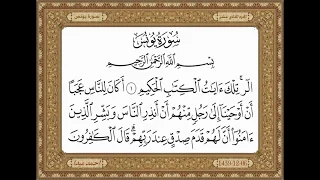 سُورَةُ يُونُسَ
بِسْمِ ٱللَّهِ ٱلرَّحْمَٰنِ ٱلرَّحِيمِ
الٓر ۚ تِلْكَ ءَايَٰتُ ٱلْكِتَٰبِ ٱلْحَكِيمِ ١ أَكَانَ لِلنَّاسِ عَجَبًا
أَنْ أَوْحَيْنَآ إِلَىٰ رَجُلٍ مِّنْهُمْ أَنْ أَنذِرِ ٱلنَّاسَ وَبَشِّرِ ٱلَّذِينَ
ءَامَنُوٓا۟ أَنَّ لَهُمْ قَدَمَ صِدْقٍ عِندَ رَبِّهِمْ ۗ قَالَ ٱلْكَٰفِرُونَ